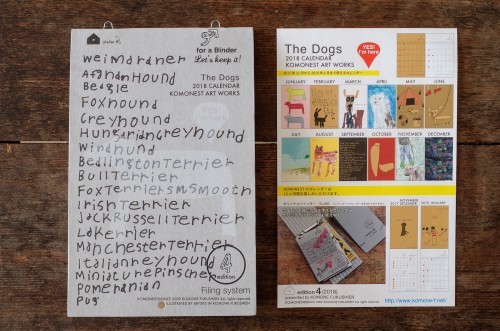 atelier K.
for a Binder
Let's keep it!
The Dogs
2018 CALENDAR
KOMONEST ART WORKS
weimardner
AfghanHound
Beagle
Foxhound
Greyhound
HungarianGreyhound
Windhund
BedlingtonTerrier
BullTerrier
FoxTerriersmSmooch
IrishTerrier
JackRussellTerrier
LakerrierR
ManchesterTerrier
ItalianGreyhound
MiniaturePinscher
Pomeranian
Pug
4
edition
Filing system
ILLUSTRATED BY ARTISTS IN KOMONE FUKUSHIEN
The Dogs
2018 CALENDAR
KOMONEST ART WORKS
YES!
I'm here
JANUARY
FEBRUARY
MARCH
APRIL
MAY
JUNE
JULY
AUGUST
SEPTEMBER
OCTOBER
NOVEMBER
DECEMBER
edition 4 (2018)
presented by KOMONE FUKUSHIEN
http://www.komone-f.net/